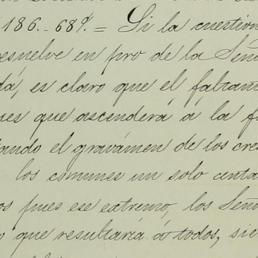 186.-68 = Si la cuestion
resuelve en pro de la Seño
dá, es claro que el faltan
es que ascenderá a la f
ando el gravámen de los cre
los comunes un solo centa
os pues ese extremo, los Seño
que resultaria á todos, sie